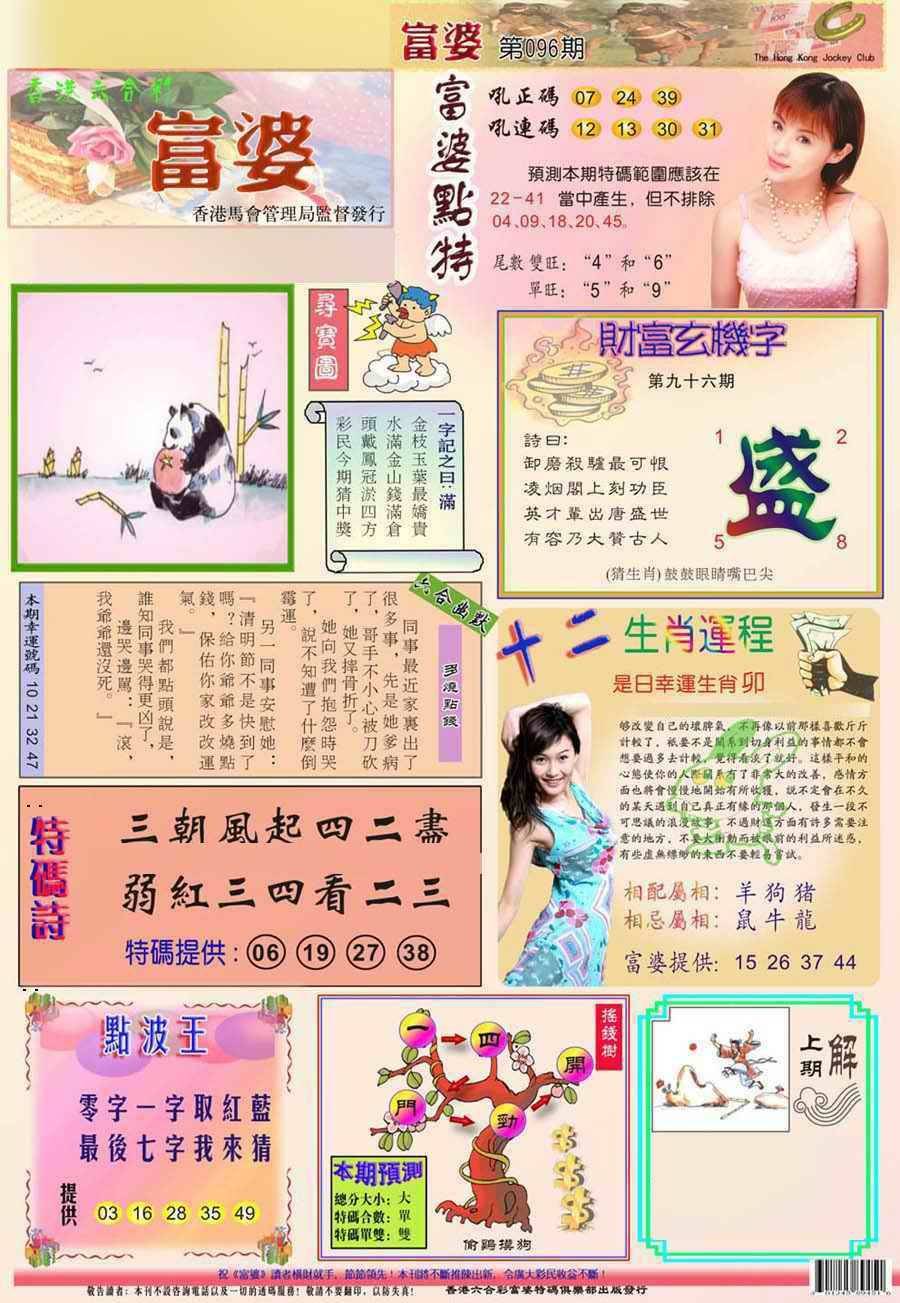 富婆 第096期
The Hong Kong Jockey Club
香港六合彩
富婆
香港馬會管理局監督發行
富婆點特
吼正碼 07 24 39
吼連碼 12 13 30 31
預測本期特碼範圍應該在
22-41 當中產生，但不排除
04、09、18、20、45。
尾數雙旺：“4”和“6”
單旺：“5”和“9”
尋寶圖
一字記之曰：滿
金枝玉葉最嬌貴
水滿金山錢滿倉
頭戴鳳冠淤四方
彩民今期猜中獎
財富玄機字
第九十六期
詩曰：
卸磨殺驢最可恨
凌烟閣上刻功臣
英才輩出唐盛世
有容乃大贊古人
1 2
盛
5 8
(猜生肖)鼓鼓眼睛嘴巴尖
本期幸運號碼 10 21 32 47
六合幽默
多燒點錢
同事最近家裏出了
很多事，先是她爹病
了，哥手不小心被刀砍
了，她又摔骨折了。
她向我們抱怨時哭
了，說不知遭了什麽倒
霉運。
另一同事安慰她：
『清明節不是快到了
嗎？給你爺爺多燒點
錢，保佑你家改改運
氣。』
我們都點頭說是，
誰知同事哭得更凶了，
邊哭邊罵：『滾，
我爺爺還沒死。』
十二生肖運程
是日幸運生肖 卯
够改變自己的壞脾氣，不再像以前那樣喜歡斤斤
計較了，祇要不是關系到切身利益的事情都不會
想要過多去計較，覺得看淡了就好。這樣平和的
心態使你的人際關系有了非常大的改善，感情方
面也將會慢慢地開始有所收獲，說不定會在不久
的某天遇到自己真正有緣的那個人，發生一段不
可思議的浪漫故事。不過財運方面有許多需要注
意的地方，不要太衝動而被眼前的利益所迷惑，
有些虛無縹緲的東西不要輕易嘗試。
相配屬相：羊 狗 猪
相忌屬相：鼠 牛 龍
富婆提供：15 26 37 44
特碼詩
三朝風起四二盡
弱紅三四看二三
特碼提供：06 19 27 38
點波王
零字一字取紅藍
最後七字我來猜
提供 03 16 28 35 49
搖錢樹
一 四
開
門 勁
本期預測
總分大小：大
特碼合數：單
特碼單雙：雙
偷鷄摸狗
上期 解
祝《富婆》讀者橫財就手，節節領先！本刊將不斷推陳出新，令廣大彩民收益不斷！
敬告讀者：本刊不設咨詢電話以及一切的透碼服務！敬請不要翻印，以防失真！ 香港六合彩富婆特碼俱樂部出版發行